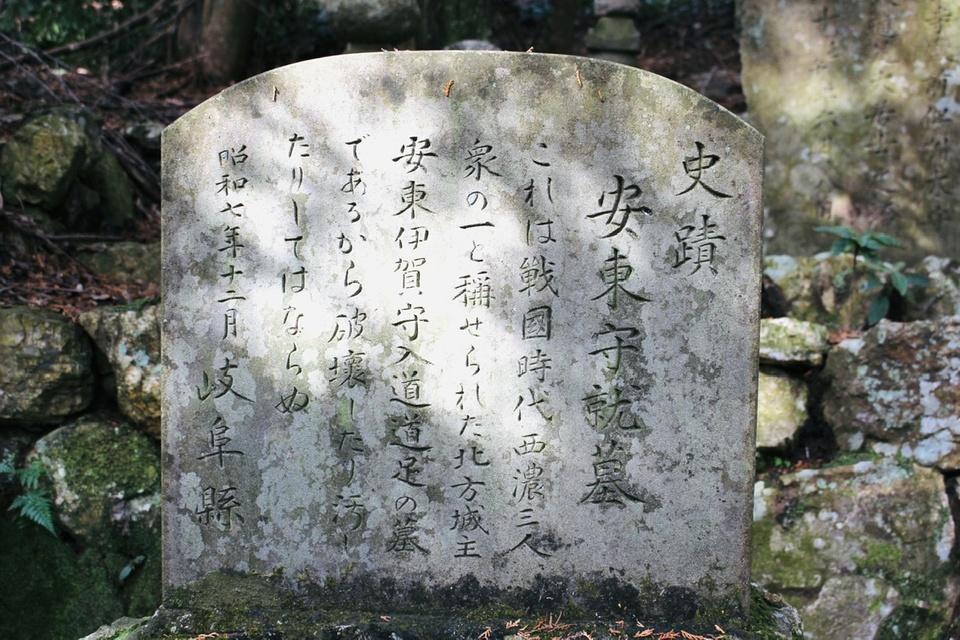 史蹟
安東守就墓
これは戦國時代西濃三人
衆の一と稱せられた北方城主
安東伊賀守入道道足の墓
であるから破壊したり汚し
たりしてはならぬ
昭和七年十二月 岐阜縣